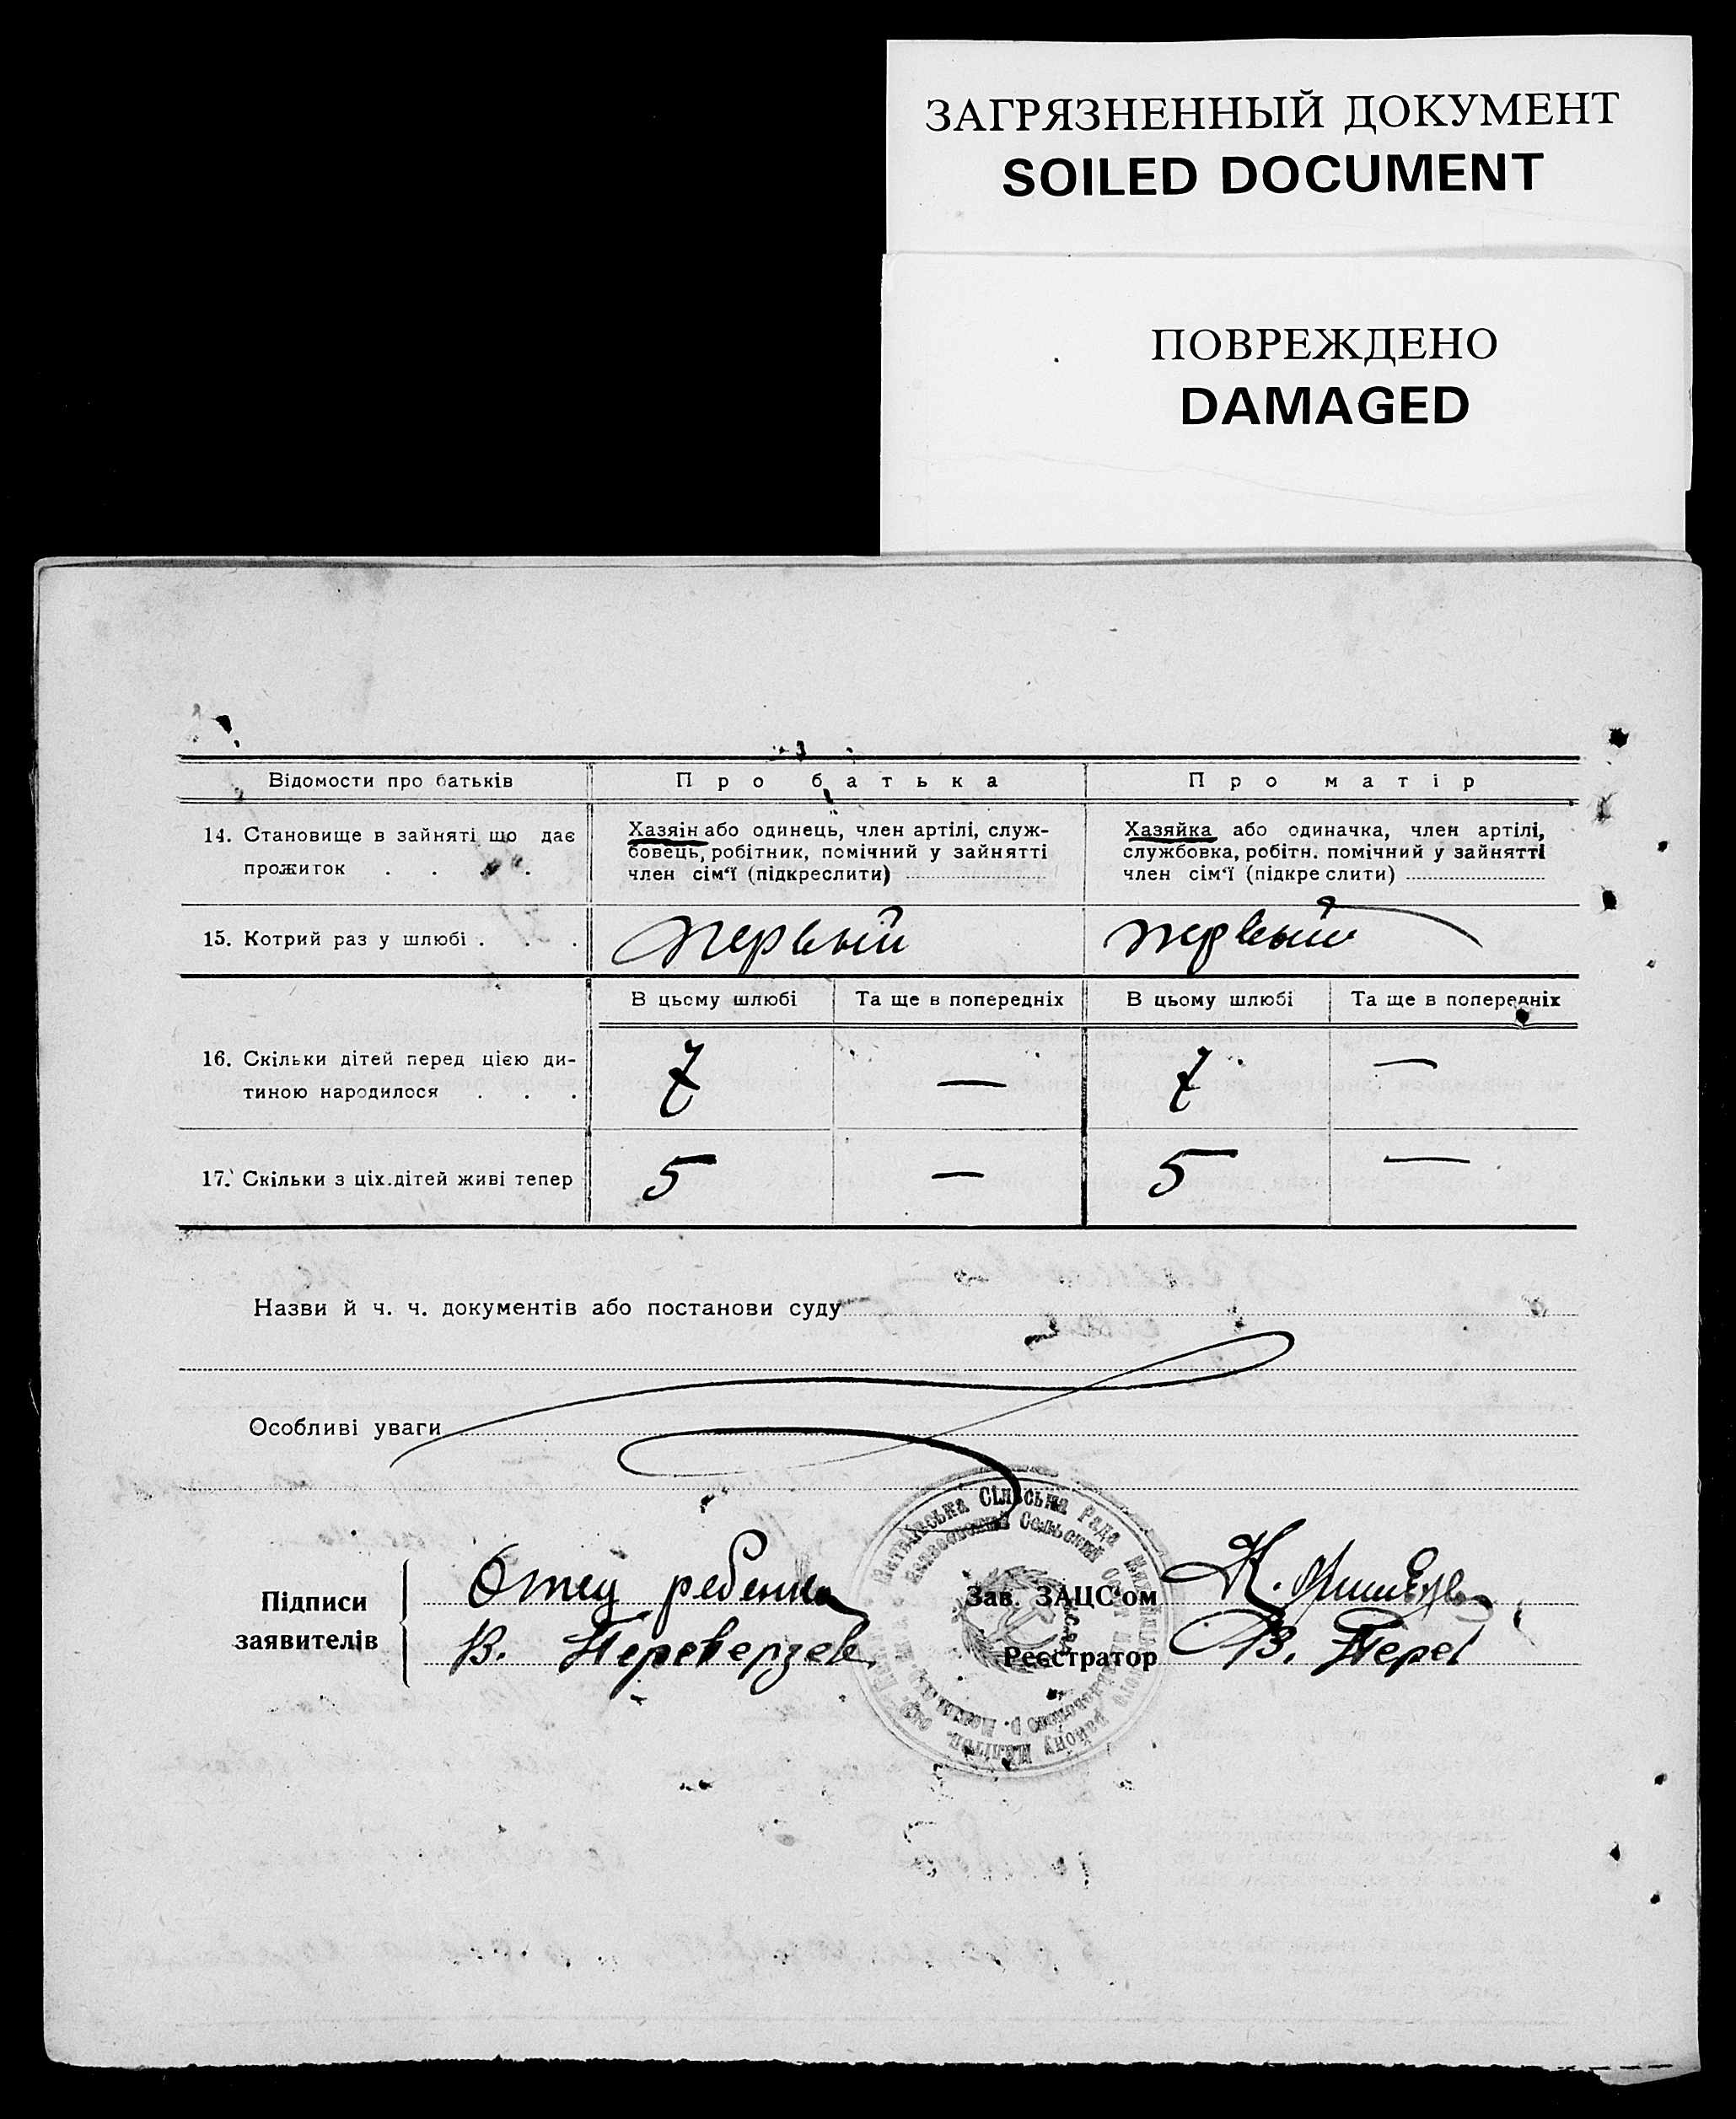 ЗАГРЯЗНЕННЫЙ ДОКУМЕНТ
SOILED DOCUMENT
ПОВРЕЖДЕНО
DAMAGED
Відомости про батьків
Про батька
Про матір
14. Становище в зайняті що дає
прожиток . . . .
Хазяін або одинець, член артілі, служ-
бовець, робітник, помічний у зайнятті
член сім‘ї (підкреслити)
Хазяйка або одиначка, член артілі,
службовка, робітн. помічний у зайнятті
член сім‘ї (підкреслити)
15. Котрий раз у шлюбі . . .
первый
первый
В цьому шлюбі
Та ще в попередніх
В цьому шлюбі
Та ще в попередніх
16. Скільки дітей перед цією ди-
тиною народилося . . .
7
—
7
—
17. Скільки з ціх.дітей живі тепер
5
—
5
—
Назви й ч. ч. документів або постанови суду
Особливі уваги
Підписи
заявителів
Отец ребенка
В. Переверзев
Зав. ЗАЦС‘ом
Н.
Реєстратор
В. Перев
Сільська Рада
Сельский
району Мелітоп.